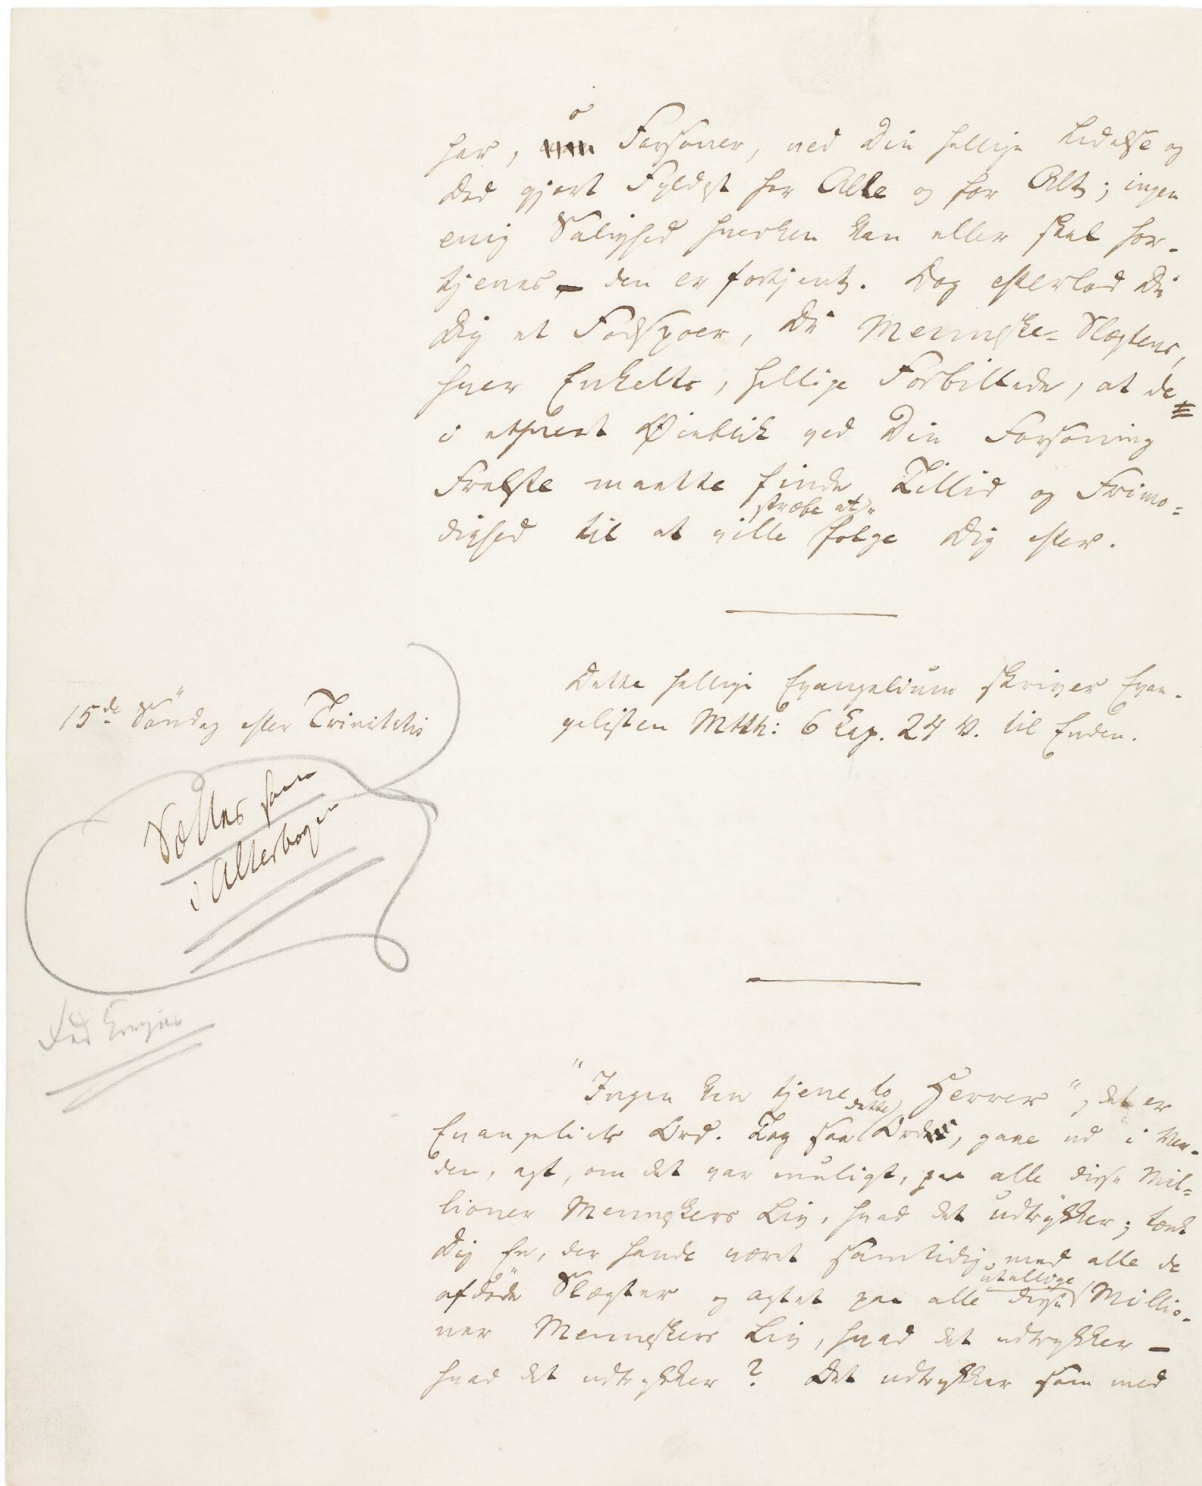 har, o Forsoner, ved Din hellige Lidelse og
Død gjort Fyldest for Alle og for Alt; ingen
evig Salighed hverken kan eller skal for-
tjenes – den er fortjent. Dog efterlod Du
Dig et Fodspor, Du Menneske-Slægtens,
hver Enkelts, hellige Forbillede, at de
i ethvert Øieblik ved Din Forsoning
Frelste maatte finde Tillid og Frimo-
dighed til at ville stræbe at følge Dig efter.
Dette hellige Evangelium skriver Evan-
gelisten Mtth: 6 Cap. 24 V. til Enden.
15de Søndag efter Trinitatis
Sættes som
i Alterbogen
"Ingen kan tjene to Herrer", det er
Evangeliets Ord. Tag saa dette Ord, gaae ud i Ver-
den, agt, om det var muligt, paa alle disse Mil-
lioner Menneskers Liv, hvad det udtrykker; tænk
Dig En, der havde været samtidig med alle de
afdøde Slægter og agtet paa alle disse utallige Millio-
ner Menneskers Liv, hvad det udtrykker –
hvad det udtrykker? Det udtrykker som med